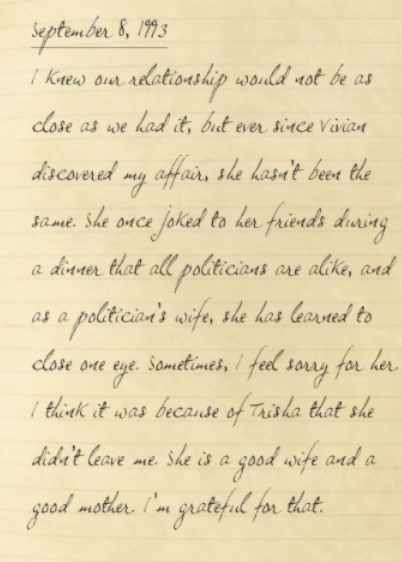 September 8, 1993
I knew our relationship would not be as
close as we had it, but ever since Vivian
discovered my affair, she hasn't been the
same. She once joked to her friends during
a dinner that all politicians are alike, and
as a politician's wife, she has learned to
close one eye. Sometimes, I feel sorry for her.
I think it was because of Trisha that she
didn't leave me. She is a good wife and a
good mother. I'm grateful for that.